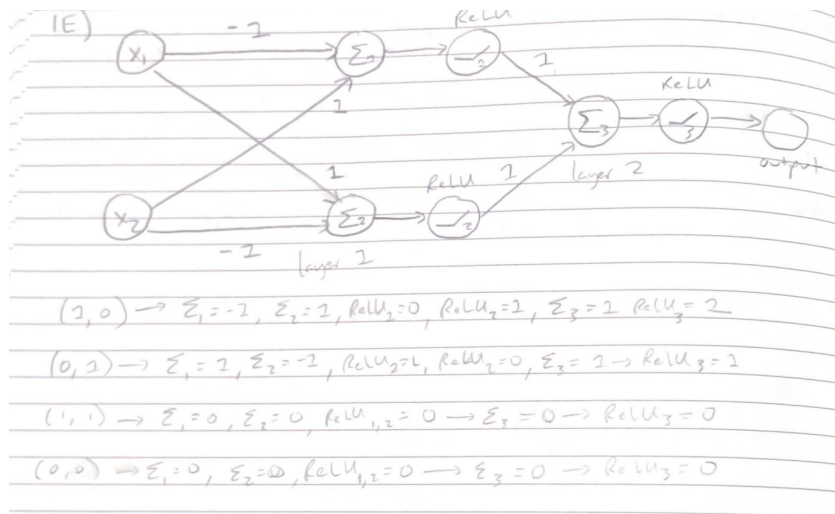 1E)
ReLU
-1
x₁ Σ₁ 1
ReLU
1
Σ₃ 3
1
output
ReLU 1 layer 2
x₂ Σ₂ 2
-1
layer 1
(1,0) → Σ₁=-1, Σ₂=1, ReLU₁=0, ReLU₂=1, Σ₃=1 ReLU₃=1
(0,1) → Σ₁=1, Σ₂=-1, ReLU₁=1, ReLU₂=0, Σ₃=1 → ReLU₃=1
(1,1) → Σ₁=0, Σ₂=0, ReLU₁,₂=0 → Σ₃=0 → ReLU₃=0
(0,0) → Σ₁=0, Σ₂=0, ReLU₁,₂=0 → Σ₃=0 → ReLU₃=0